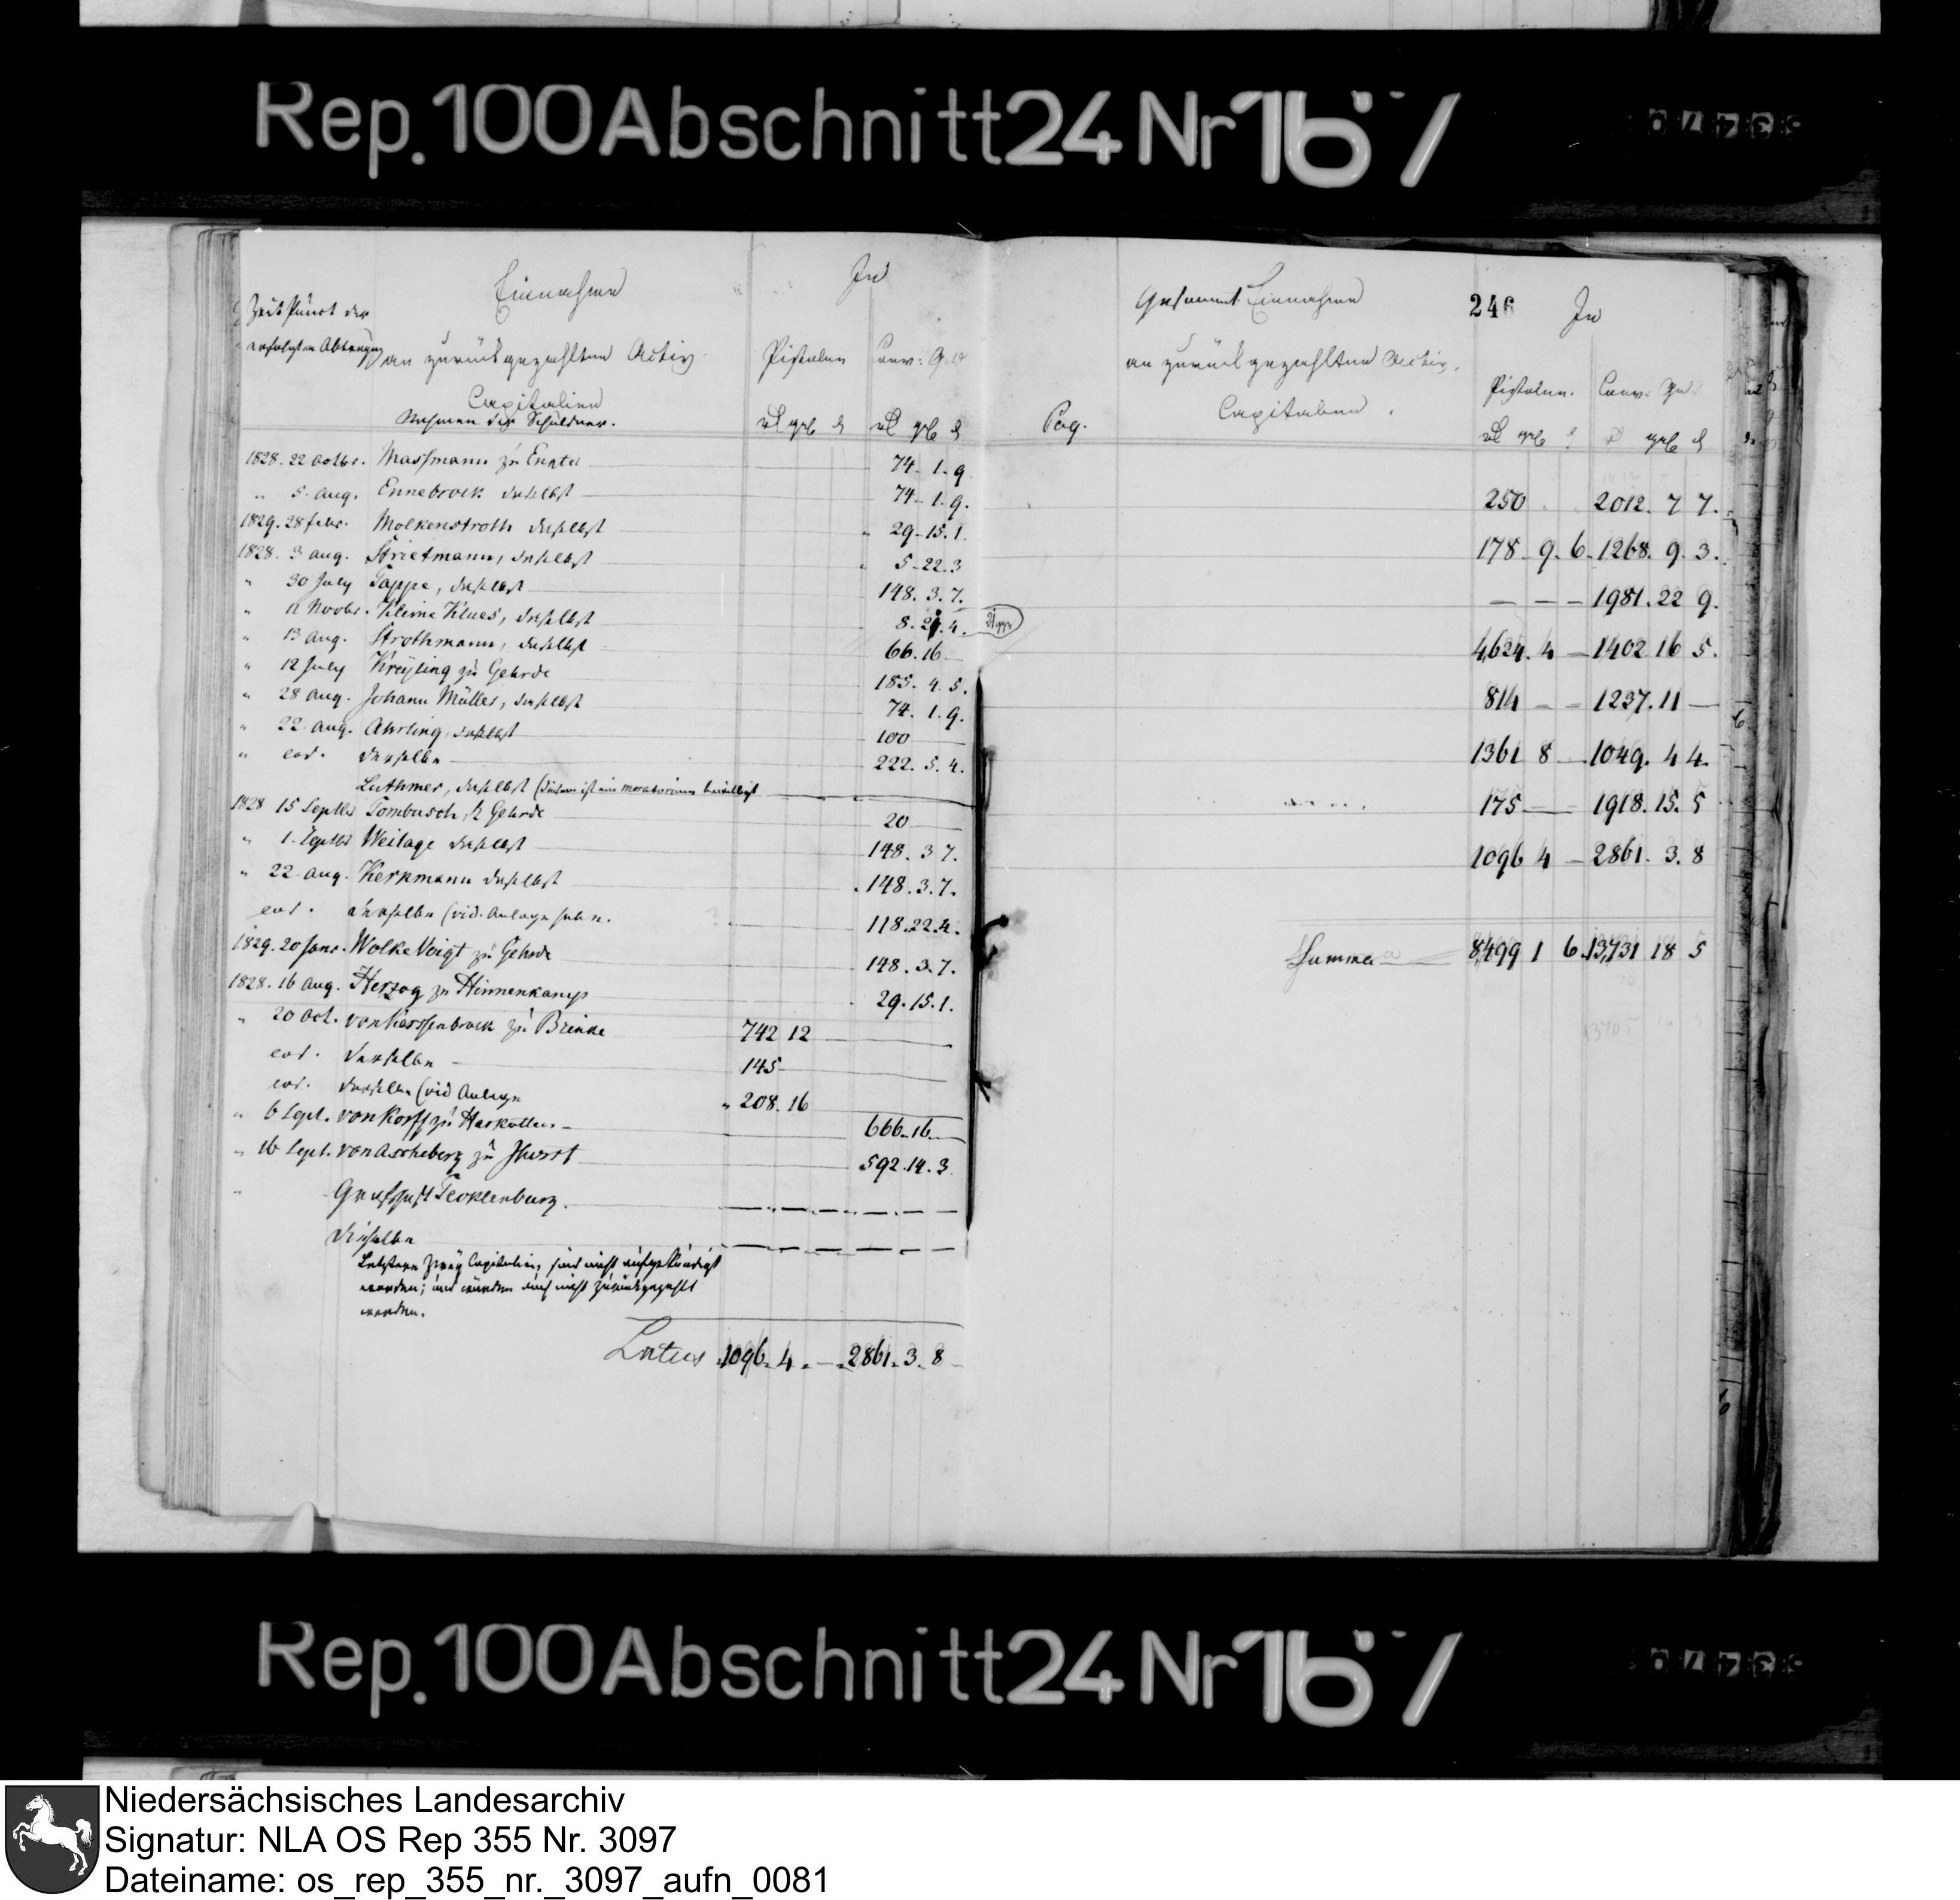 Rep. 100 Abschnitt 24 Nr 167
Zeit Punct der
erfolgten Abtragung
Einnahme
an zurückgezahlten Activ
Capitalien
Nahmen der Schuldner.
In
Pistolen Conv: Geld
rl ggr d rl ggr d
1828. 22 Octbr. Massmann zu Engter 74. 1. 9
" 5. Aug. Ennebrock daselbst 74. 1. 9.
1829. 28 Febr. Molkenstroth daselbst 29. 15. 1.
1828. 3 Aug. Strietmann, daselbst 5. 22. 3
" 30 July Pappe, daselbst 148. 3. 7.
" 11 Novbr. Kleine Klues, daselbst 8. 21. 4.
" 13 Aug. Strothmann, daselbst 66. 16 —
" 12 July Kreyling zu Gehrde 185. 4. 5.
" 28 Aug. Johann Müller, daselbst 74. 1. 9.
" 22 Aug. Ahrling, daselbst 100 —
" eod. derselbe 222. 5. 4.
Luthmer, daselbst (diesem ist ein moratorium bewilligt
1828 15 Septbr Tombusch, z Gehrde 20 —
" 1. Septbr Weilage daselbst 148. 3 7.
" 22. Aug. Kerkmann daselbst 148. 3. 7.
eod. derselbe (vid. Anlage sub n. 118. 22. 4.
1829. 20 Janr. Wolke Voigt zu Gehrde 148. 3. 7.
1828. 16 Aug. Herzog zu Hinnenkamp 29. 15. 1.
" 20 Oct. von Kerssenbrock zu Brinke 742 12 —
eod. derselbe 145 —
eod. derselbe (vid Anlage 208. 16
" 6 Sept. von Korff zu Harkotten 666. 16 —
" 16 Sept. von Ascheberg zu Ihorst 592. 14. 3.
" Grafschaft Tecklenburg.
Dieselbe
Letztere zwey Capitalien, sind nicht aufgekündigt
worden; und wurden auch nicht zurückgezahlt
worden.
Latus 1096. 4. — 2861. 3. 8
246
Pag.
Gesammt Einnahme
an zurückgezahlten Activ.
Capitalien.
In
Pistolen. Conv. Geld
rl ggr d rl ggr d
250 2012. 7 7.
178 9. 6. 1268. 9. 3.
— — — 1981. 22 9.
4,624. 4 — 1402 16 5.
814 — — 1237. 11 —
1361 8 — 1049. 4 4.
175 — 1918. 15. 5
1096 4 — 2861. 3. 8
Summa 8,499 1 6. 13,731 18 5
Rep. 100 Abschnitt 24 Nr 167
Niedersächsisches Landesarchiv
Signatur: NLA OS Rep 355 Nr. 3097
Dateiname: os_rep_355_nr._3097_aufn_0081